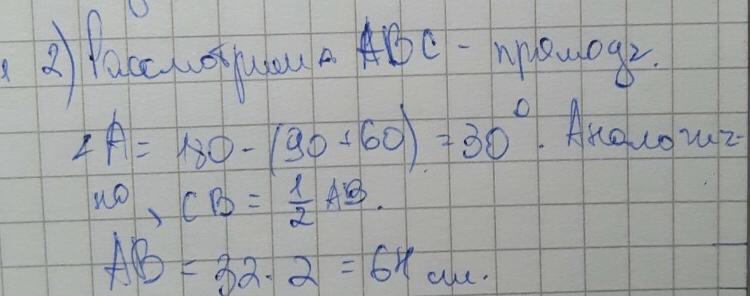 2) Рассмотрим △ ABC - прямоуг.
∠A = 180 - (90 + 60) = 30°. Аналогич-
но, CB = 1/2 AB.
AB = 32 · 2 = 64 см.